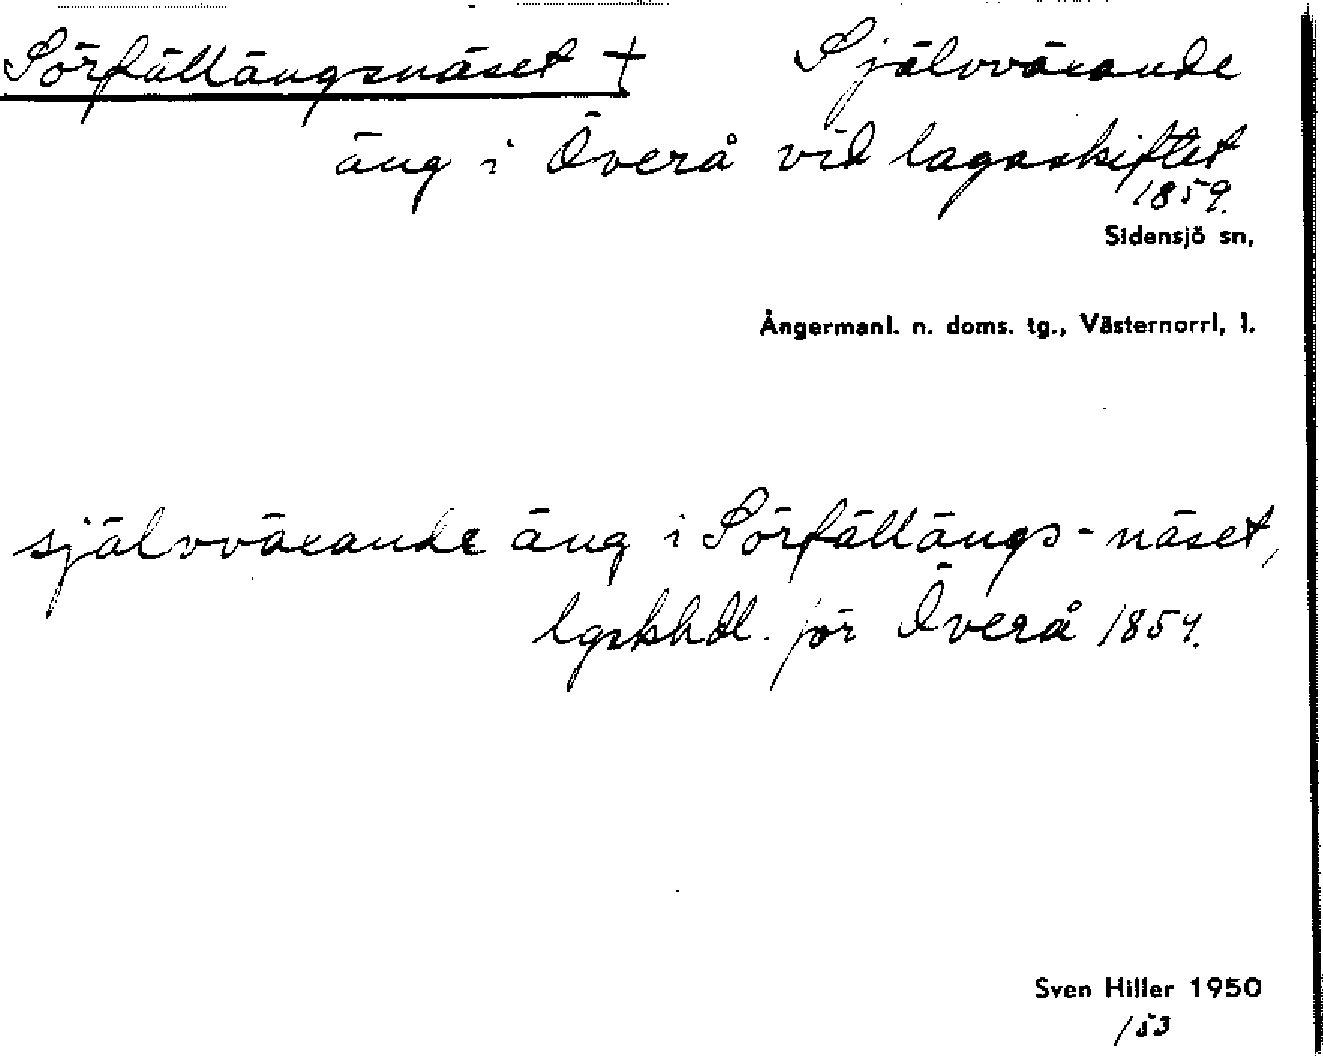 Sörfällängsnäset † Självväxande
äng i Överå vid lagaskiftet
1859.
Sidensjö sn,
Ångermanl. n. doms. tg., Västernorrl, l.
självväxande äng i Sörfällängs-näset,
lgskhdl. för Överå 1859.
Sven Hiller 1950
/53